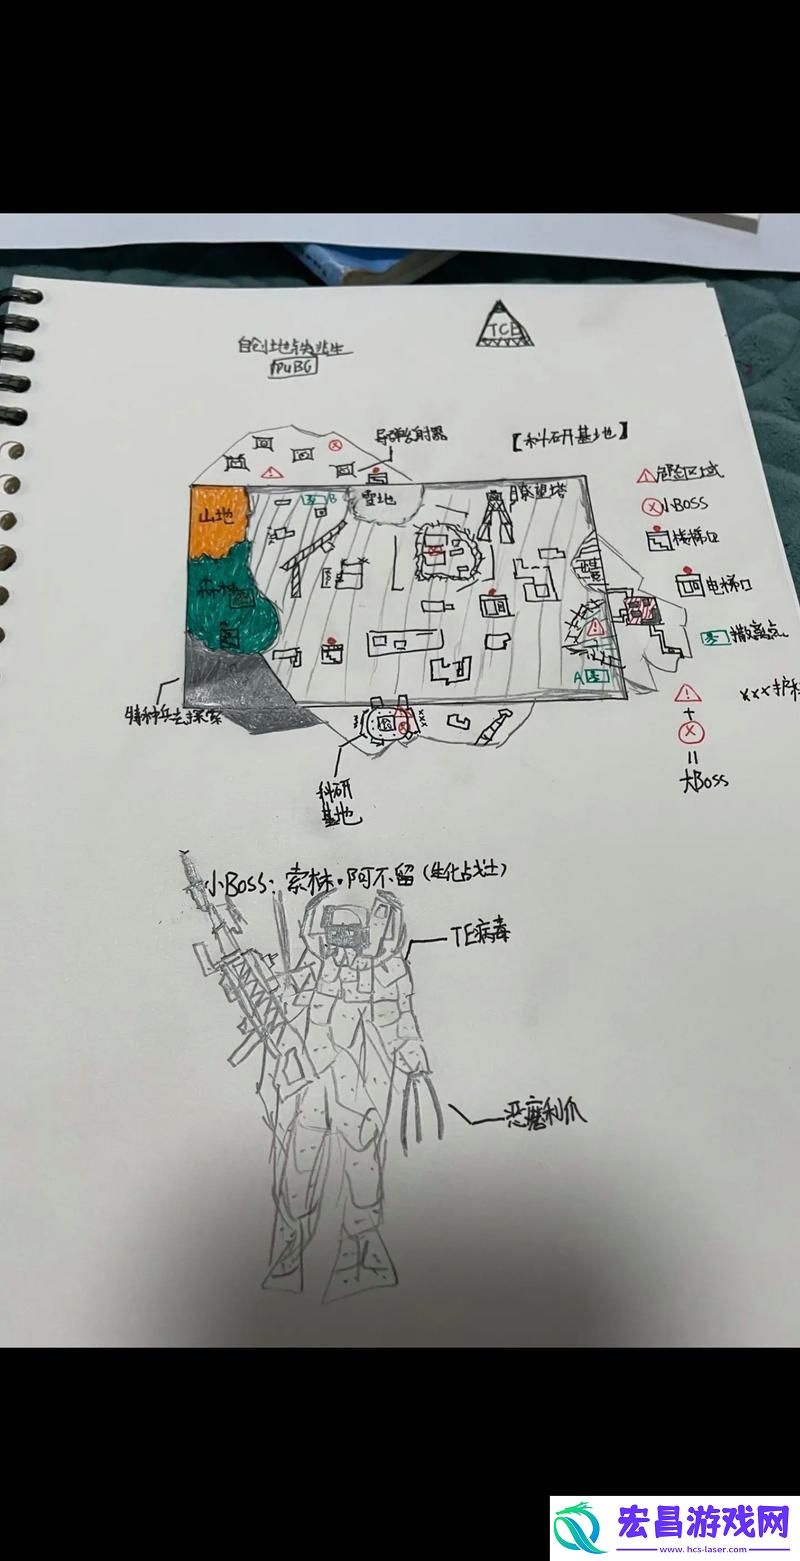 TCE
自创地铁逃生
PUBG
导弹发射器
【科研基地】
危险区域
山地
B
雪地
瞭望塔
小BOSS
楼梯口
森林
电梯口
撤离点
A
xxx护栏
特种兵去探索
+
=
大Boss
科研
基地
小BOSS：索林·阿不留（生化战士）
TE病毒
恶磨利爪
宏昌游戏网
www.hcs-laser.com